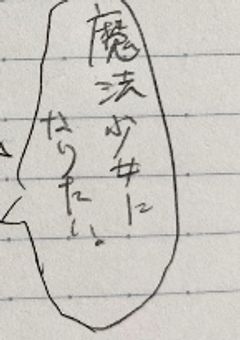 魔法少女に
なりたい。